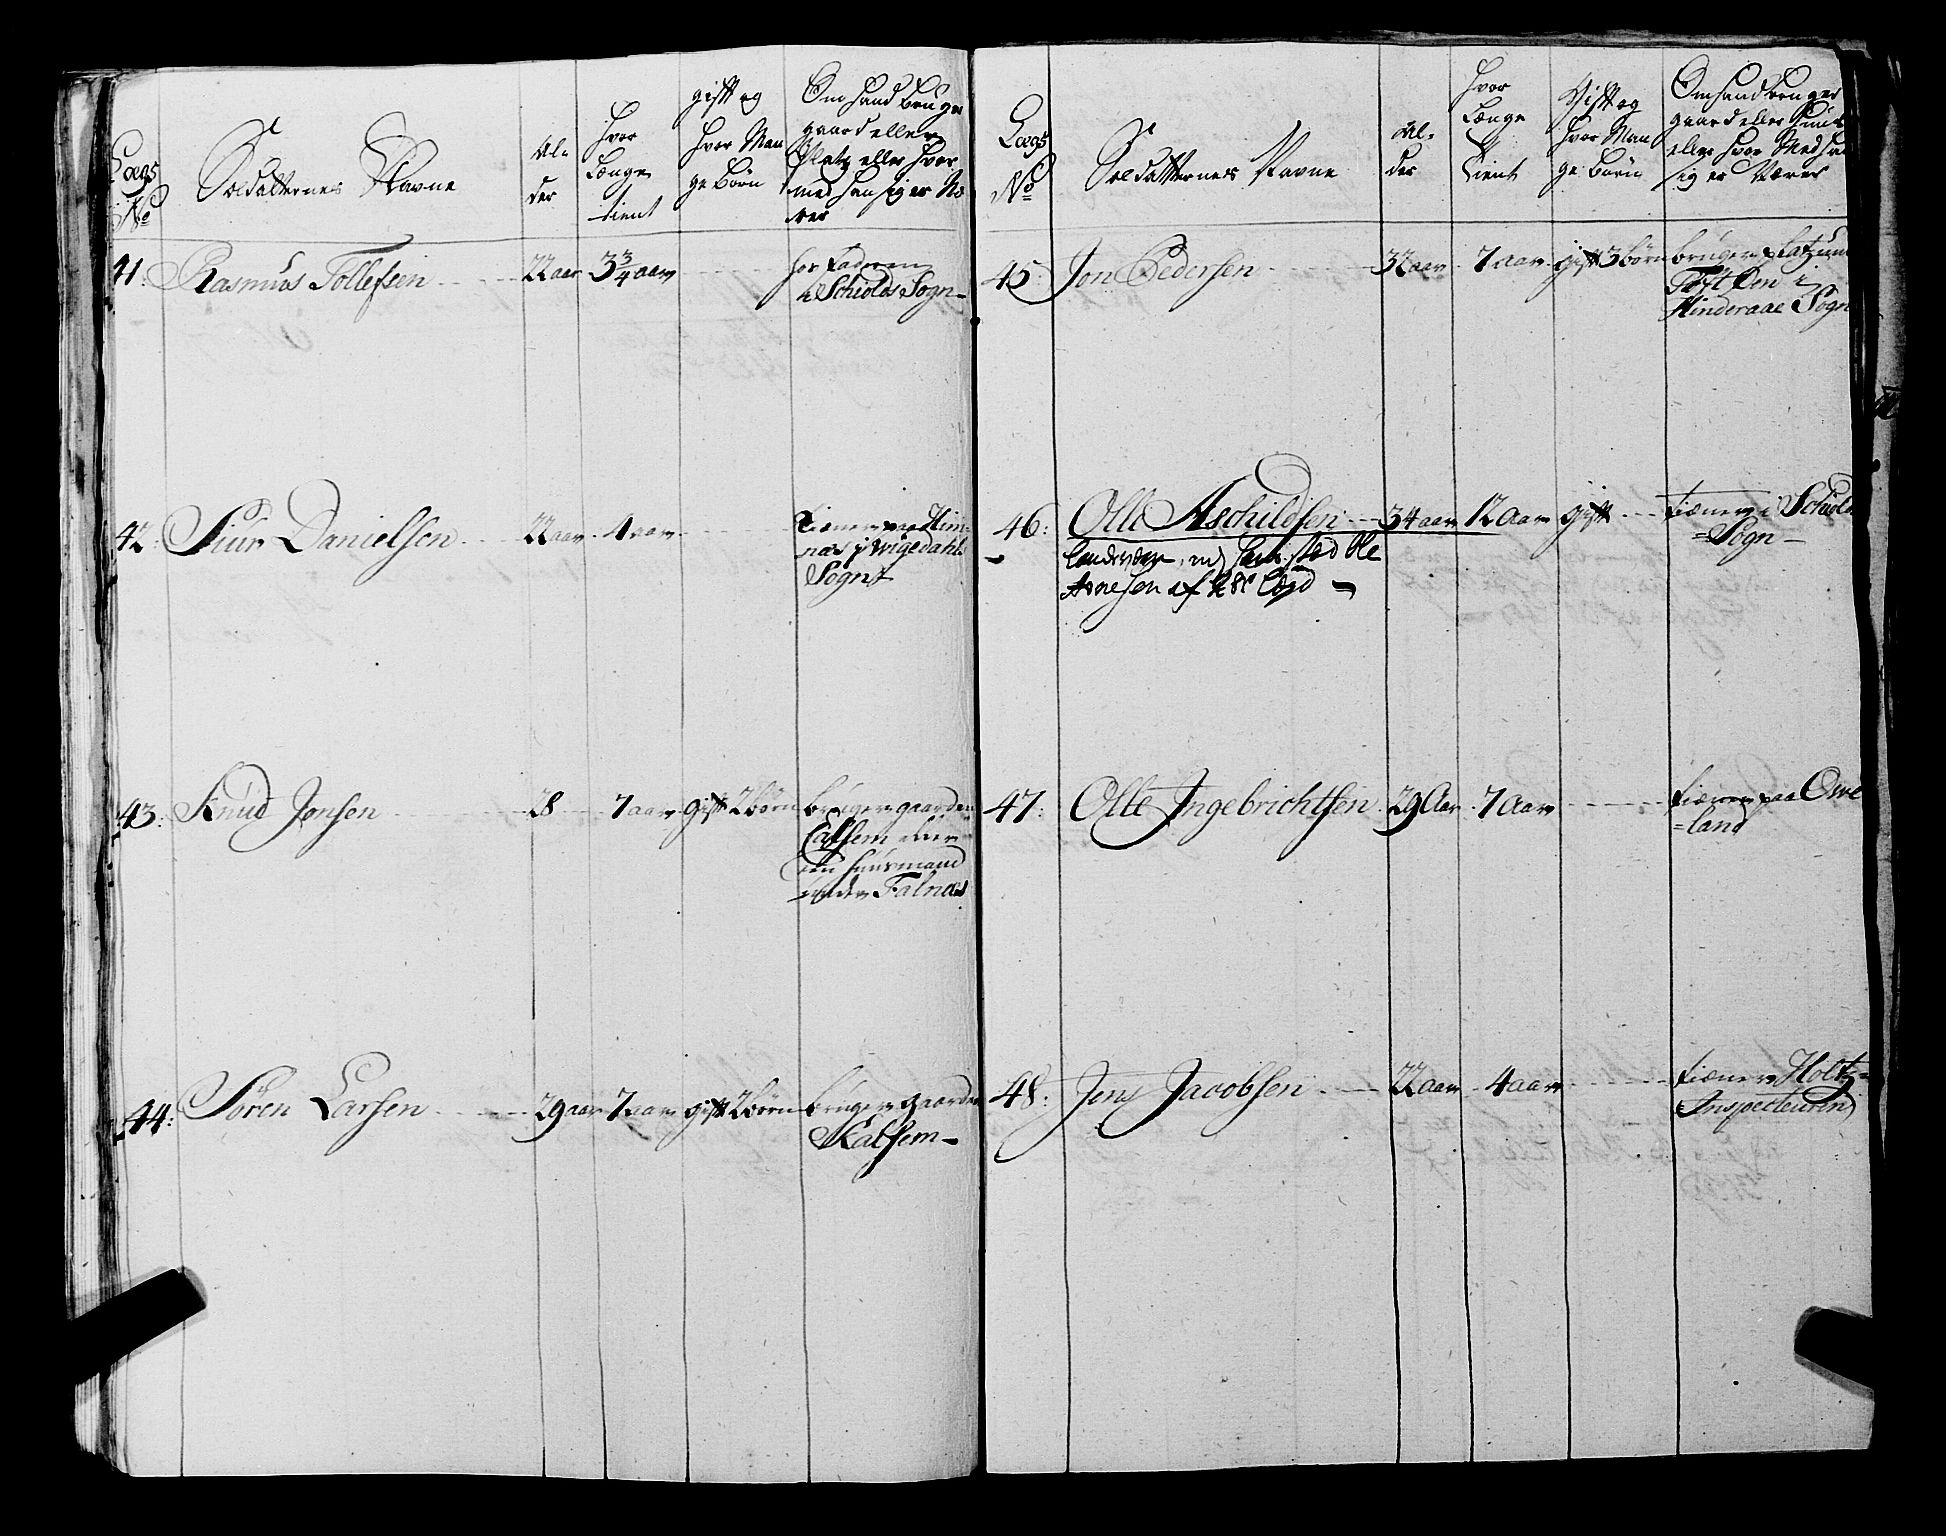 Lægs
No
Soldatternes Navne
Al-
der
hvor
Længe
tient
gift og
hvor Man
ge Børn
Om hand bruger
gaard eller
Platz eller hvor
med han sig er Næ
rer
41:
Rasmus Tollefsen
22 aar
3 3/4 aar
hos Faderen
i Schiolds Sogn
42:
Siur Danielsen
22 aar
4 aar
tiener
næs i Wigedahls
Sogn
43:
Knud Jonsen
28
7 aar
gift 2 børn
bruger gaarden
huusmand
under Falnæs
44:
Sören Larsen
29 aar
7 aar
gift 2 børn
bruger gaarden
Kalsem
Lægs
No
Soldatternes Navne
Al-
der
hvor
Længe
tient
Gift og
hvor Man
ge Børn
Om hand bruger
gaard eller
eller hvor Med han
sig er Nærer
45:
Jon Pedersen
32 aar
7 aar
gift 3 børn
bruger platz
i
Hinderaae Sogn
46:
Olle Aschildsen
34 aar
12 Aar
gift
tiener i Schiold
=Sogn
sted Ole
Arnesen af Lægd
47:
Olle Ingebrichtsen
29 Aar
7 Aar
tiener paa
=land
48:
Jens Jacobsen
22 aar
4 aar
tiener Holtz=
Inspecteuren